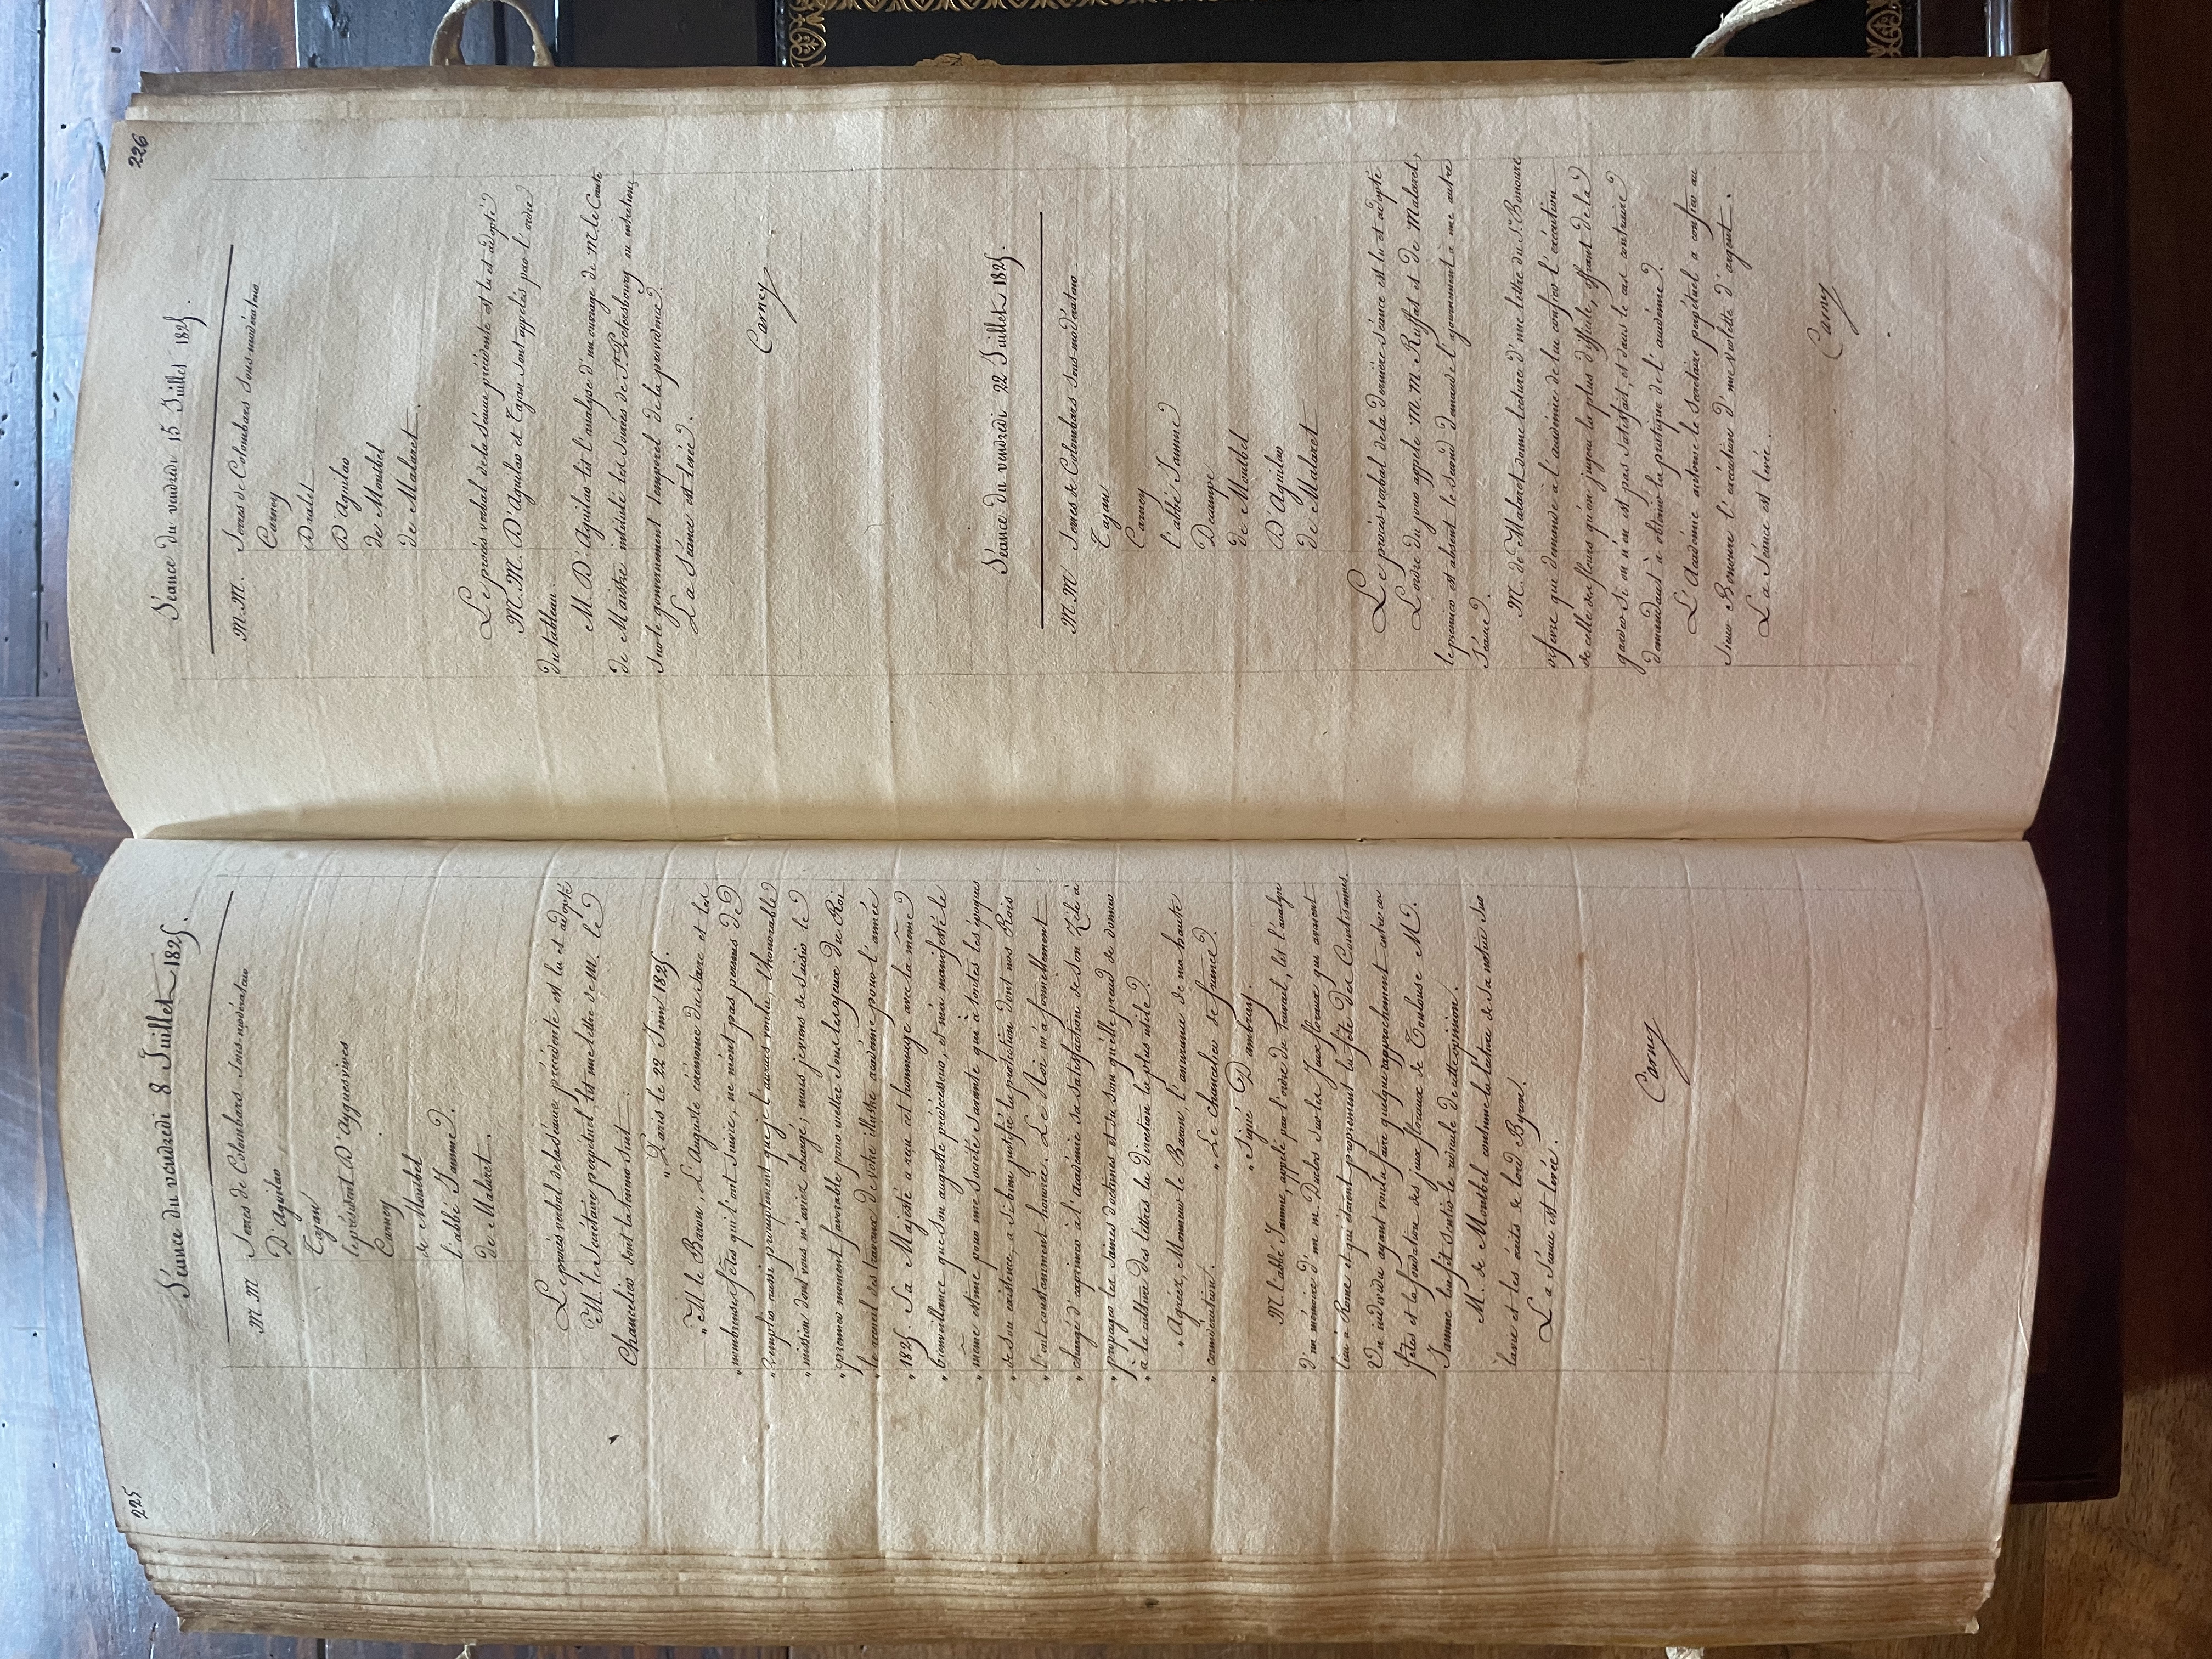 225
Séance du vendredi 8 Juillet 1825.
M M Serres de Colombars Sous-modérateur
D'Aguilar
Tajan
le président D'Ayguesvives
Carney
de Montbel
l'abbé Jamme
de Malaret.
Le procès verbal de la séance précédente est lu et adopté
M. le Secrétaire perpétuel, lit une lettre de M. le
Chancelier dont la teneur suit :
„ Paris le 22 Juin 1825.
„ M. le Baron, L'Auguste cérémonie du sacre et les
„ nombreuses fêtes qui l'ont suivie, ne m'ont pas permis de
„ remplir aussi promptement que je l'aurais voulu, l'honorable
„ mission dont vous m'aviez chargé; mais je viens de saisir le
„ premier moment favorable pour mettre sous les yeux du Roi
„ le recueil des travaux de votre illustre académie pour l'année
„ 1825. Sa Majesté a reçu cet hommage avec la même
„ bienveillance que son auguste prédécesseur, et m'a manifesté la
„ même estime pour une société savante qui à toutes les époques
„ de son existence, a si bien justifié la protection dont nos Rois
„ l'ont constamment honorée. Le Roi m'a formellement
„ chargé d'exprimer à l'académie sa satisfaction de son zèle à
„ propager les saines doctrines et du soin qu'elle prend de donner
„ à la culture des lettres la direction la plus utile.
„ Agréez, Monsieur le Baron, l'assurance de ma haute
„ considération.
„ Le chancelier de france.
„ Signé Dambray.
M l'abbé Jamme, appelé par l'ordre du travail, lit l'analyse
d'un mémoire d'm. m. Duclos sur les Jeux floraux qui avaient
lieu à Rome et qui étaient proprement la fête des Courtisannes.
Un individu ayant voulu faire quelque rapprochement entre ces
fêtes et la fondation des jeux floraux de Toulouse M.
Jamme lui fit sentir le ridicule de cette opinion.
M. de Montbel continue la lecture de sa notice sur
la vie et les écrits de lord Byron.
La séance est levée.
Carney
226
Séance du vendredi 15 Juillet 1825.
M.M. Serres de Colombars Sous-modérateur
Carney
Dralet
D'Aguilar
de Montbel
de Malaret.
Le procès verbal de la séance précédente est lu et adopté
M.M. D'Aguilar et Tajan sont appelés par l'ordre
du tableau.
M. D'Aguilar lit l'analyse d'un ouvrage de M. le Comte
de Maistre intitulé les Soirées de St. Petersbourg ou entretiens
sur le gouvernement temporel de la providence.
La séance est levée.
Carney
Séance du vendredi 22 Juillet 1825.
M M Serres de Colombars Sous-modérateur.
Tajan
Carney
l'abbé Jamme
Decampe
de Montbel
D'Aguilar
de Malaret
Le procès verbal de la dernière séance est lu et adopté
L'ordre du jour appele M. M. Ruffat et de Malaret,
le premier est absent le second demande l'ajournement à une autre
séance.
M. de Malaret donne lecture d'une lettre du S. Bonoure
orfevre qui demande à l'académie de lui confier l'éxécution
de celle des fleurs qu'on jugera la plus difficile, offrant de la
garder si on n'en est pas satisfait, et dans le cas contraire
demandant à obtenir la pratique de l'académie.
L'Académie autorise le Secrétaire perpétuel a confier au
sieur Bonoure l'éxécution d'une violette d'argent.
La Séance est levée.
Carney